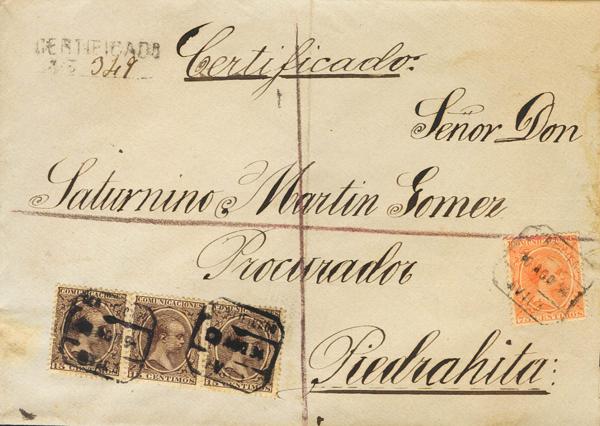 CERTIFICADO
349
Certificado:
Señor Don
Saturnino Martin Gomez
Procurador
Piedrahita:
COMUNICACIONES
COMUNICACIONES
COMUNICACIONES
15 CENTIMOS
15 CENTIMOS
15 CENTIMOS
AGO
AVILA
CENTIMOS